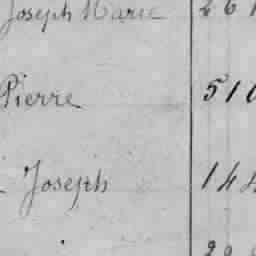 Joseph Marie 261
Pierre 510
Joseph 144